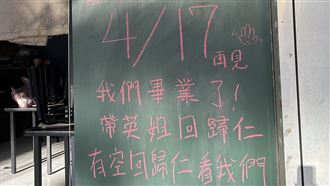 4/17 再見
我們畢業了!
帶英姐回歸仁
有空回歸仁看我們